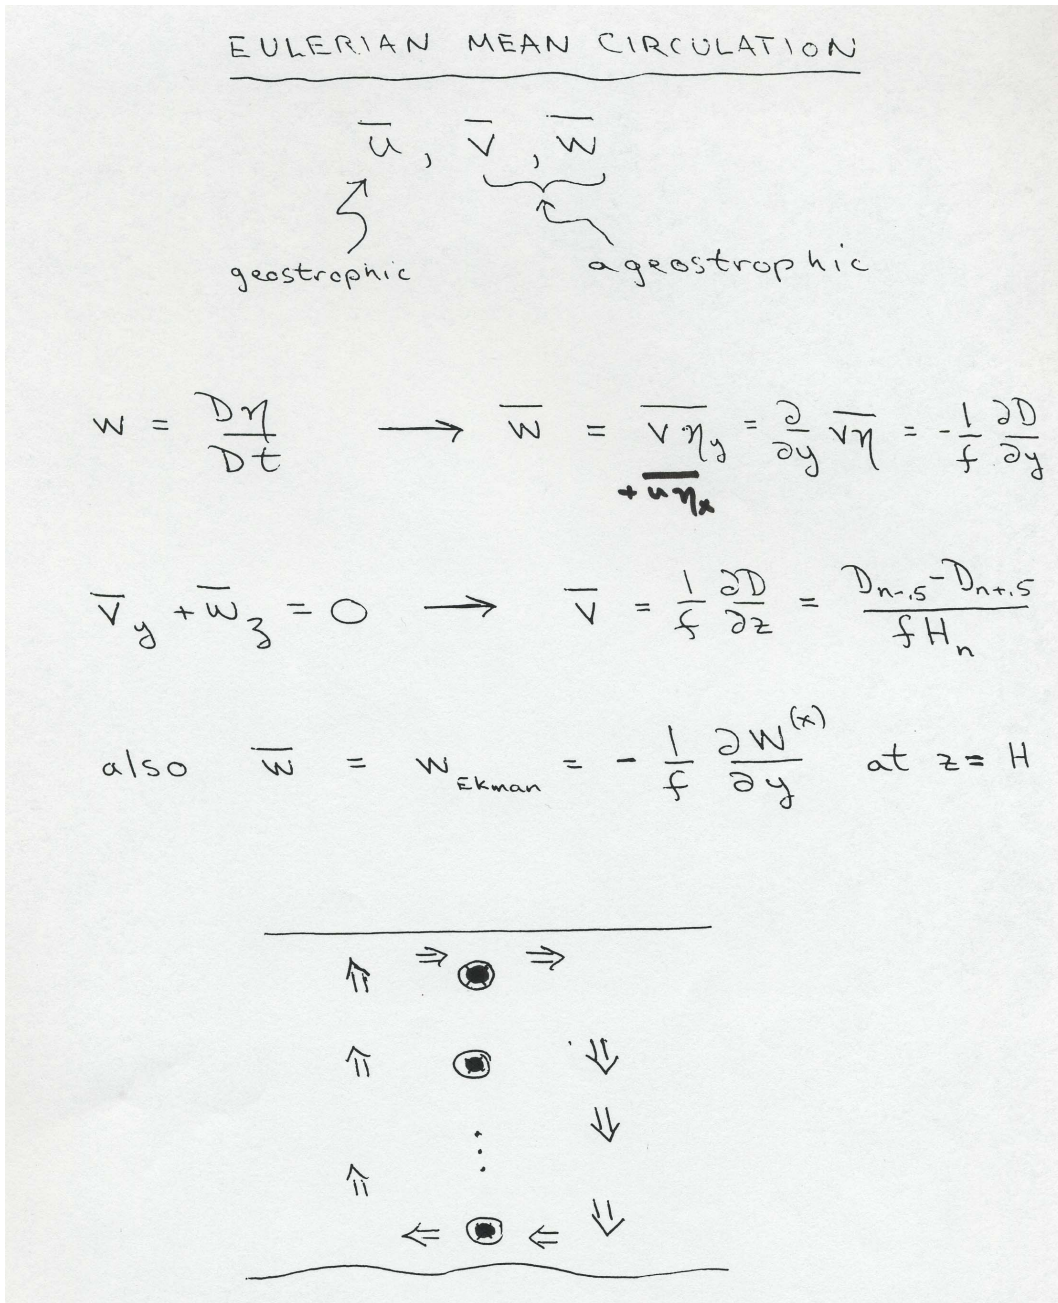 EULERIAN MEAN CIRCULATION
u̅ , v̅ , w̅
geostrophic ageostrophic
w = Dη/Dt ⟶ w̅ = \overline{v η_y} = ∂/∂y \overline{vη} = - 1/f ∂D/∂y
+ \overline{u η_x}
v̅_y + w̅_z = 0 ⟶ v̅ = 1/f ∂D/∂z = (D_{n-.5} - D_{n+.5}) / (f H_n)
also w̅ = w_{Ekman} = - 1/f ∂W^{(x)}/∂y at z = H